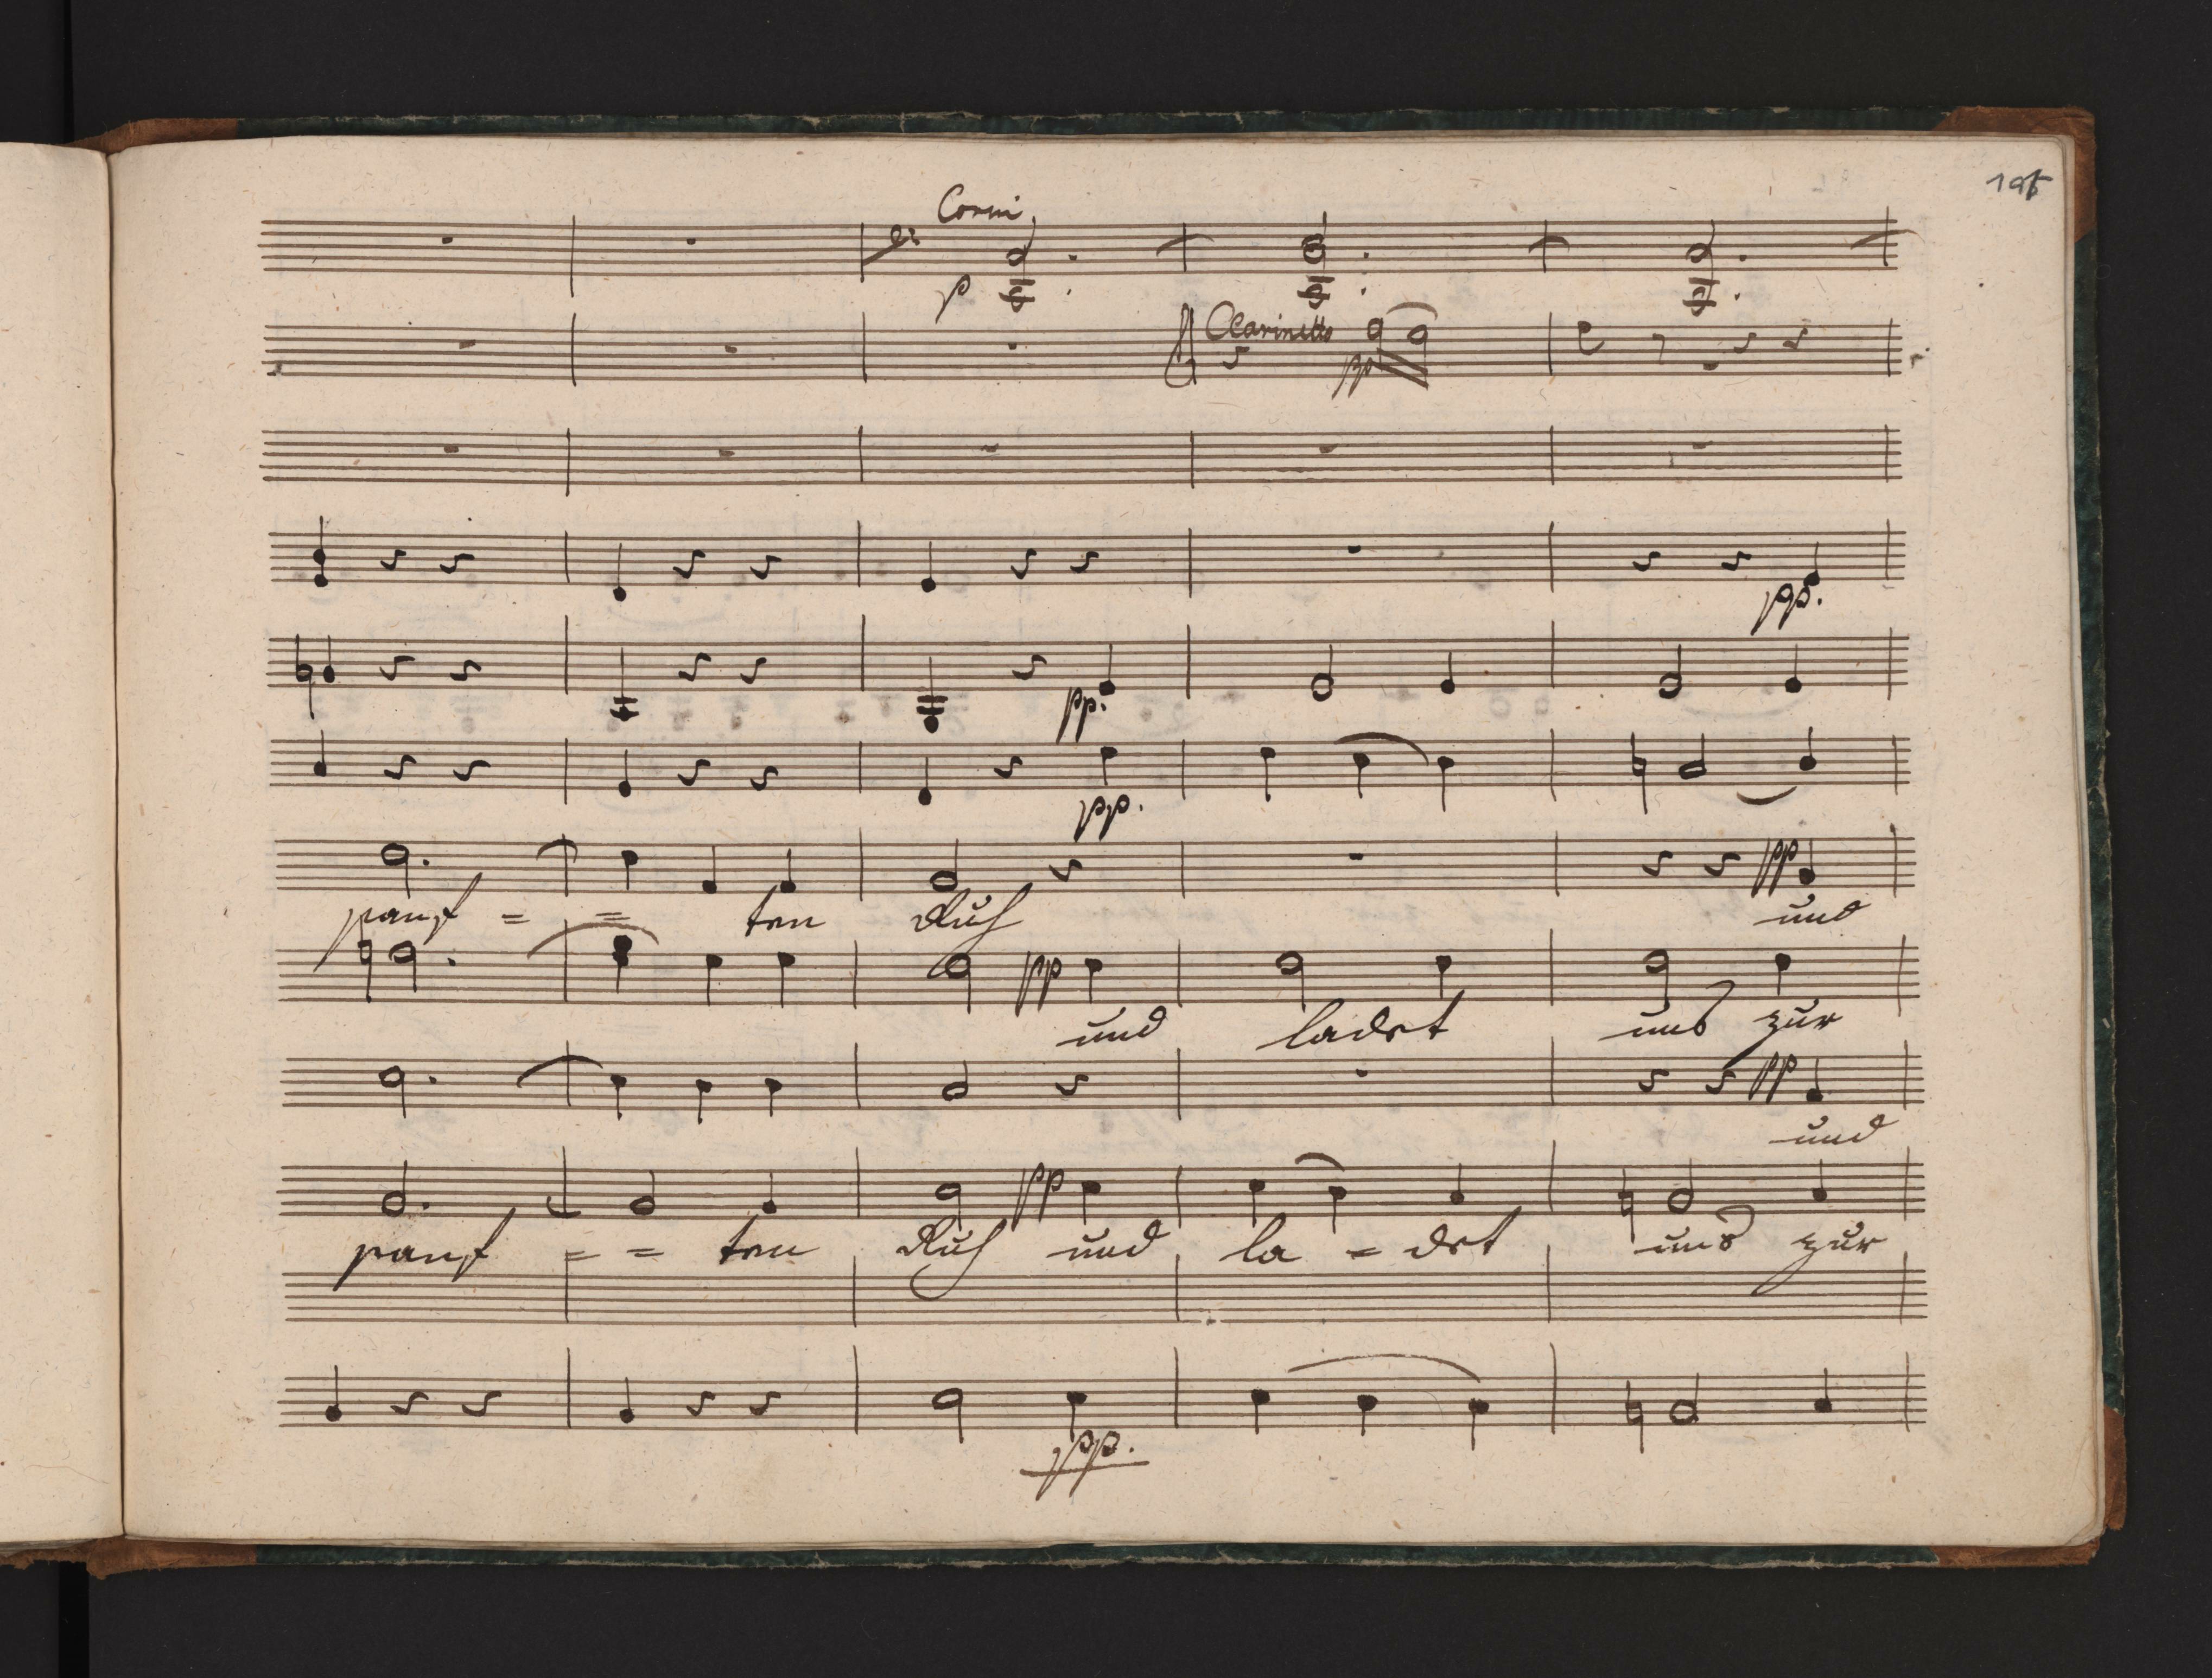 Corni
p
Clarinetto
pp
pp.
pp.
pp.
pp
sanf = = ten Ruh und
pp
und ladet uns zur
pp
und
pp
sanf = = ten Ruh und la = det uns zur
pp.